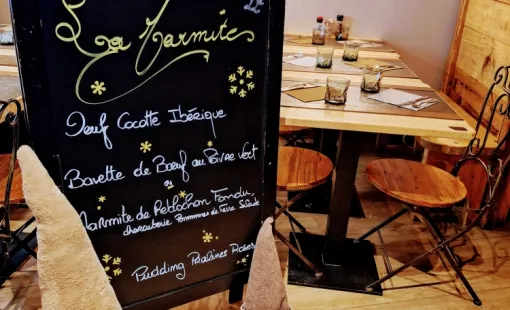 La Marmite
Oeuf Cocotte Ibérique
Bavette de Bœuf au Poivre Vert
ou
Marmite de Reblochon Fondu,
charcuterie Pommmes de Terre Salade
Pudding Pralines Roses